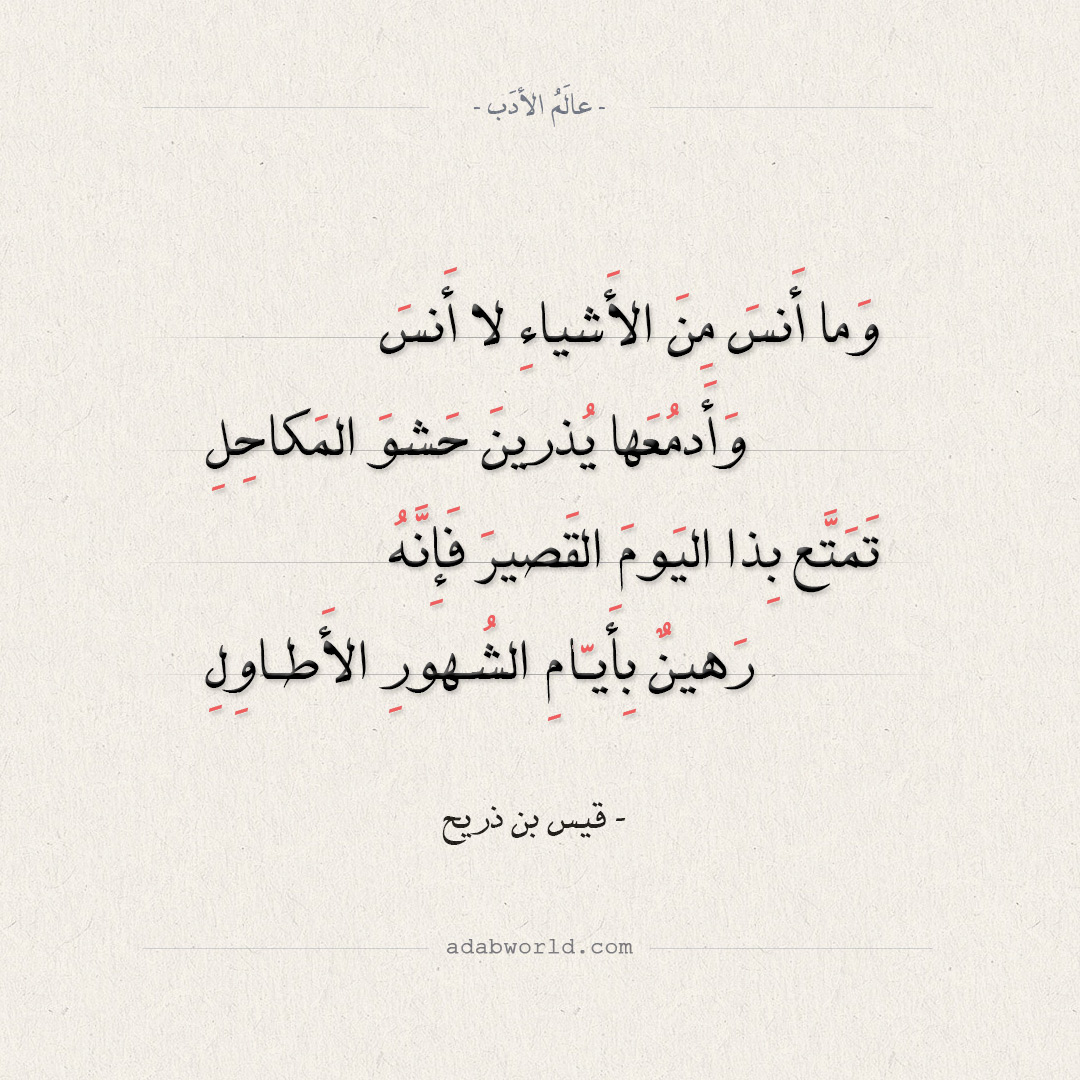 - عالَمُ الأدَب -
وَما أَنسَ مِنَ الأَشياءِ لا أَنسَ
وَأَدمُعَها يُذرينَ حَشوَ المَكاحِلِ
تَمَتَّع بِذا اليَومَ القَصيرَ فَإِنَّهُ
رَهينٌ بِأَيّامِ الشُهورِ الأَطاوِلِ
- قيس بن ذريح
adabworld.com